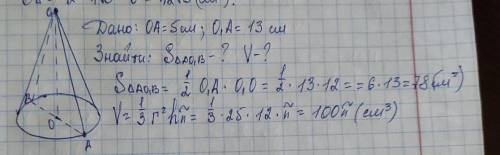 Дано: OA=5см; O₁A=13см
Знайти: S△AO₁B - ? V-?
S△AO₁B = 1/2 O₁A · O₁O = 1/2 · 13 · 12 = = 6 · 13 = 78 (см²)
V = 1/3 r² h π̃ = 1/3 · 25 · 12 · π̃ = 100 π̃ (см³)
B
O
A